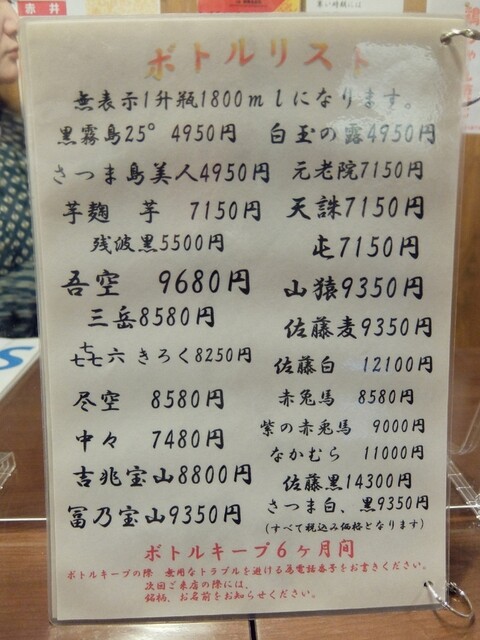 赤井
ボトルリスト
無表示1升瓶1800mlになります。
黒霧島25° 4950円 白玉の露4950円
さつま島美人4950円 元老院7150円
芋麹 芋 7150円 天誅7150円
残波黒5500円 屯7150円
吾空 9680円 山猿9350円
三岳8580円 佐藤麦9350円
七七七六 きろく8250円 佐藤白 12100円
尽空 8580円 赤兎馬 8580円
中々 7480円 紫の赤兎馬 9000円
なかむら 11000円
吉兆宝山8800円 佐藤黒14300円
冨乃宝山9350円 さつま白、黒9350円
(すべて税込み価格となります)
ボトルキープ6ヶ月間
ボトルキープの際 無用なトラブルを避ける為電話番号をお書きください。
次回ご来店の際には、
銘柄、お名前をお知らせください。